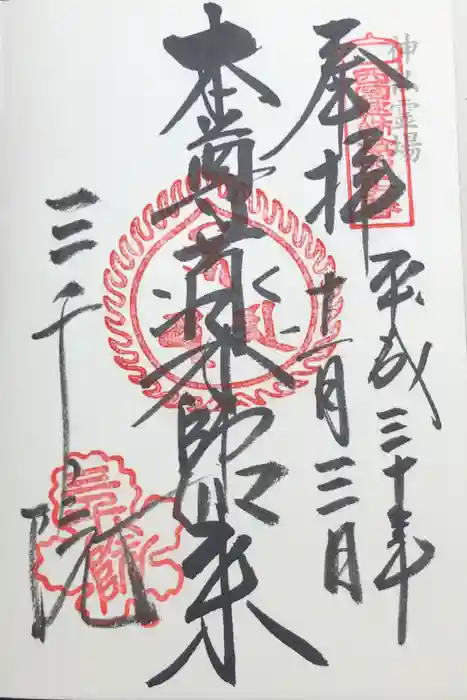 神仏霊場
奉拝
平成三十年
十一月三日
本尊薬師如来
三千院